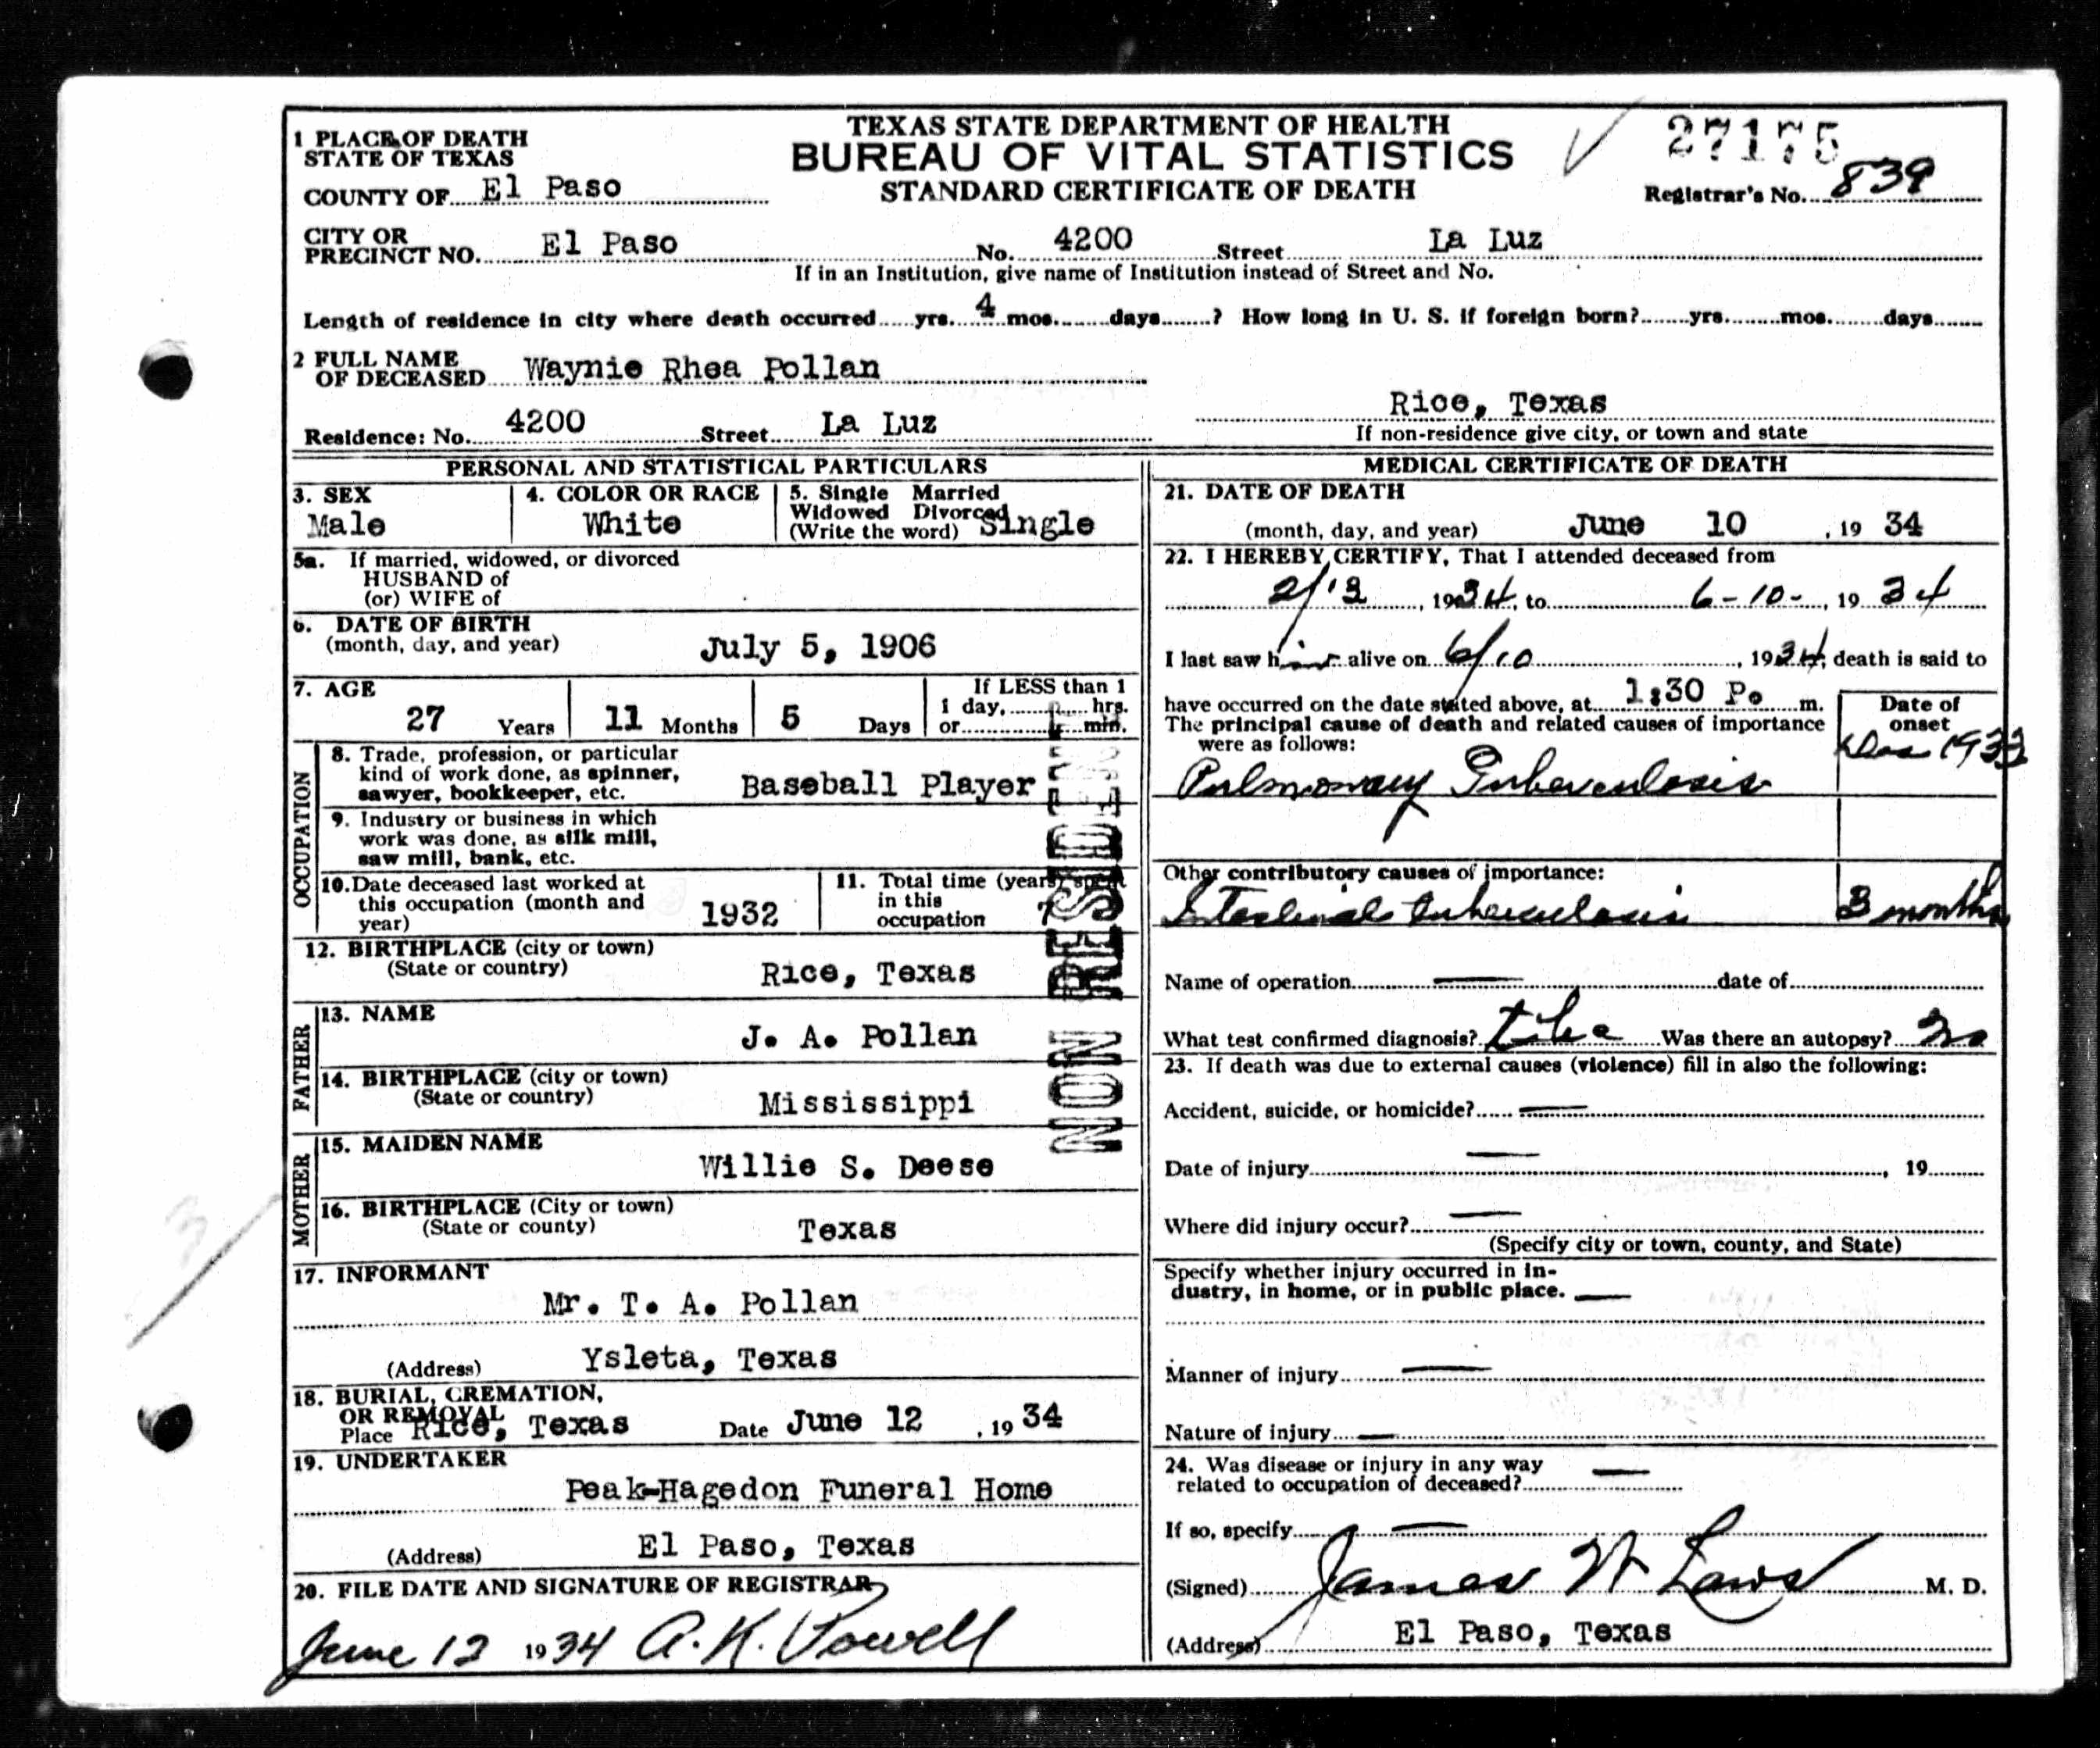 TEXAS STATE DEPARTMENT OF HEALTH
BUREAU OF VITAL STATISTICS
STANDARD CERTIFICATE OF DEATH
27175
Registrar's No. 839
1 PLACE OF DEATH
STATE OF TEXAS
COUNTY OF El Paso
CITY OR
PRECINCT NO. El Paso No. 4200 Street La Luz
If in an Institution, give name of Institution instead of Street and No.
Length of residence in city where death occurred yrs. 4 mos. days ? How long in U. S. if foreign born? yrs. mos. days
2 FULL NAME
OF DECEASED Waynie Rhea Pollan
Residence: No. 4200 Street La Luz Rice, Texas
If non-residence give city, or town and state
PERSONAL AND STATISTICAL PARTICULARS
3. SEX
Male
4. COLOR OR RACE
White
5. Single Married
Widowed Divorced
(Write the word) Single
5a. If married, widowed, or divorced
HUSBAND of
(or) WIFE of
6. DATE OF BIRTH
(month, day, and year) July 5, 1906
7. AGE
27 Years 11 Months 5 Days
If LESS than 1
1 day, hrs.
or min.
OCCUPATION
8. Trade, profession, or particular
kind of work done, as spinner,
sawyer, bookkeeper, etc. Baseball Player
9. Industry or business in which
work was done, as silk mill,
saw mill, bank, etc.
10. Date deceased last worked at
this occupation (month and
year) 1932
11. Total time (years) spent
in this
occupation 7
NON RESIDENT
12. BIRTHPLACE (city or town)
(State or country) Rice, Texas
FATHER
13. NAME
J. A. Pollan
14. BIRTHPLACE (city or town)
(State or country) Mississippi
MOTHER
15. MAIDEN NAME
Willie S. Deese
16. BIRTHPLACE (City or town)
(State or county) Texas
17. INFORMANT
Mr. T. A. Pollan
(Address) Ysleta, Texas
18. BURIAL, CREMATION,
OR REMOVAL
Place Rice, Texas Date June 12, 1934
19. UNDERTAKER
Peak-Hagedon Funeral Home
(Address) El Paso, Texas
20. FILE DATE AND SIGNATURE OF REGISTRAR
June 12 1934 A. K. Powell
MEDICAL CERTIFICATE OF DEATH
21. DATE OF DEATH
(month, day, and year) June 10, 19 34
22. I HEREBY CERTIFY, That I attended deceased from
1934, to 6-10-, 19 34
I last saw him alive on 6/10, 1934, death is said to
have occurred on the date stated above, at 1:30 P. m.
The principal cause of death and related causes of importance
were as follows:
Date of
onset
Pulmonary Tuberculosis Dec 1933
Other contributory causes of importance:
Intestinal tuberculosis 3 months
Name of operation — date of
What test confirmed diagnosis? Was there an autopsy? No
23. If death was due to external causes (violence) fill in also the following:
Accident, suicide, or homicide? —
Date of injury —, 19
Where did injury occur? —
(Specify city or town, county, and State)
Specify whether injury occurred in in-
dustry, in home, or in public place. —
Manner of injury —
Nature of injury —
24. Was disease or injury in any way
related to occupation of deceased? —
If so, specify —
(Signed) James W Laws M. D.
(Address) El Paso, Texas